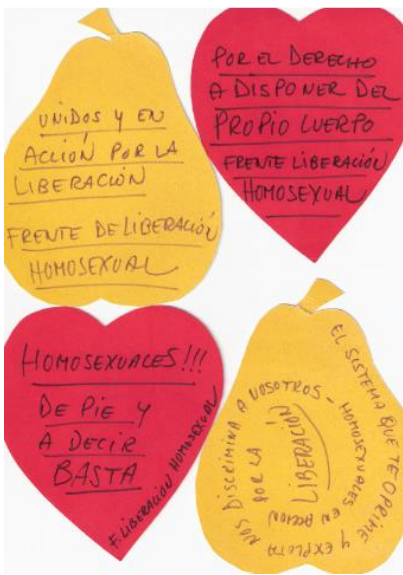 UNIDOS Y EN
ACCIÓN POR LA
LIBERACIÓN
FRENTE DE LIBERACIÓN
HOMOSEXUAL
POR EL DERECHO
A DISPONER DEL
PROPIO CUERPO
FRENTE LIBERACIÓN
HOMOSEXUAL
HOMOSEXUALES!!!
DE PIE Y
A DECIR
BASTA
F. LIBERACIÓN HOMOSEXUAL
EL SISTEMA QUE TE OPRIME Y EXPLOTA NOS DISCRIMINA A NOSOTROS - HOMOSEXUALES EN ACCION POR LA LIBERACIÓN